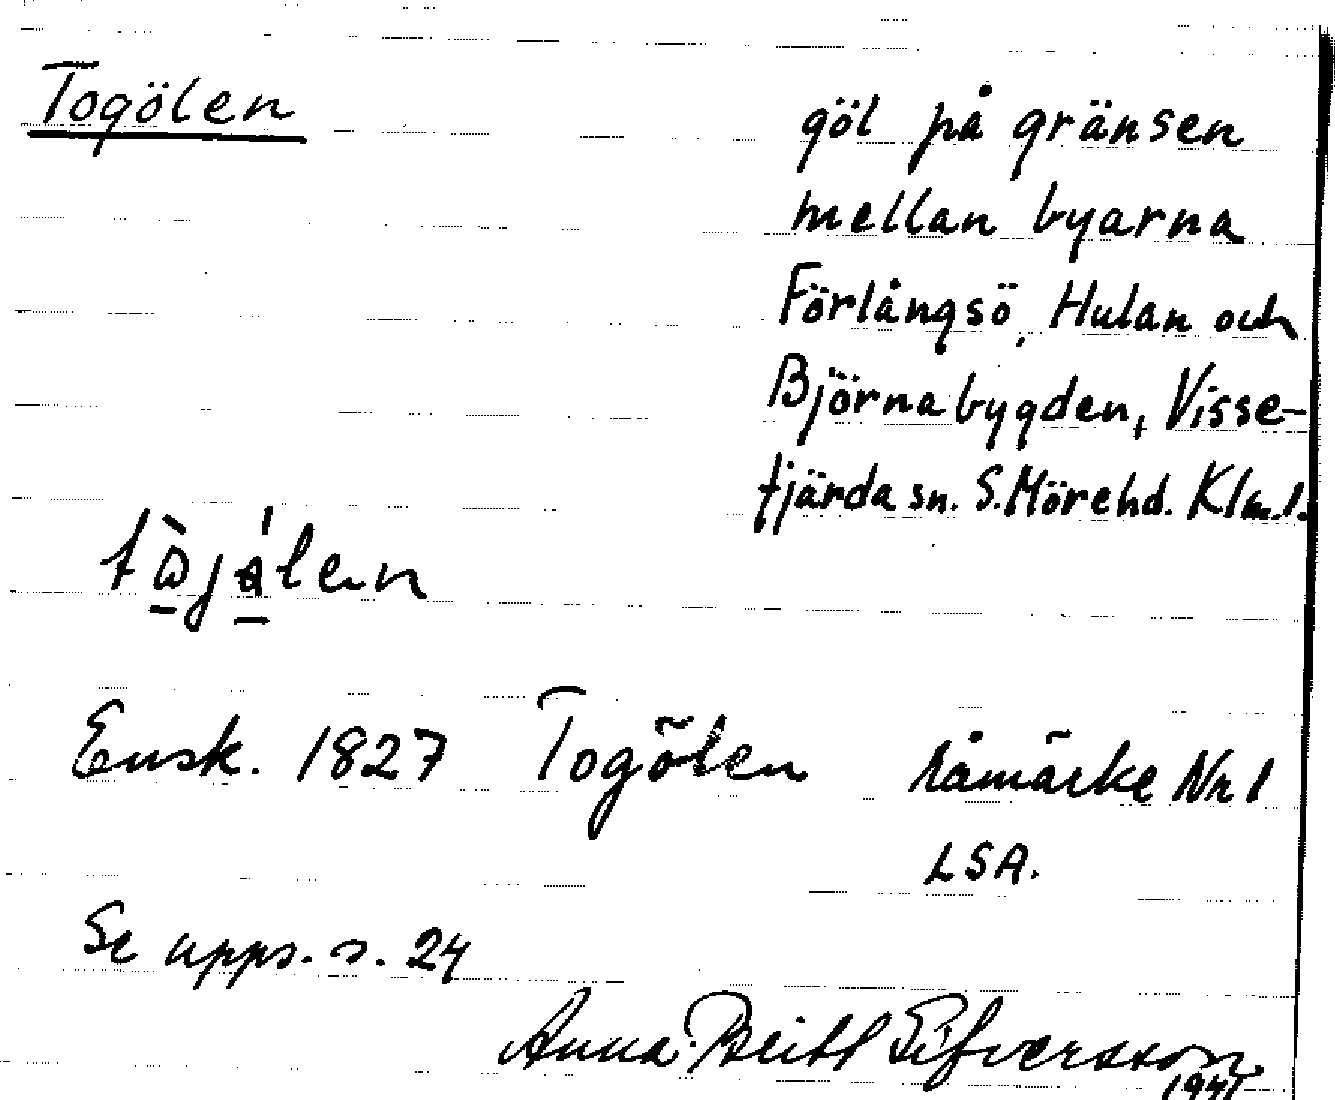 Togölen
göl på gränsen
mellan byarna
Förlångsö, Hulan och
Björnabygden, Visse-
fjärda sn. S. Möre hd. Klm. l.
Ensk. 1827 Togölen råmärke Nr 1
LSA.
Se upps. s. 24
Anna-Britt Silfversson